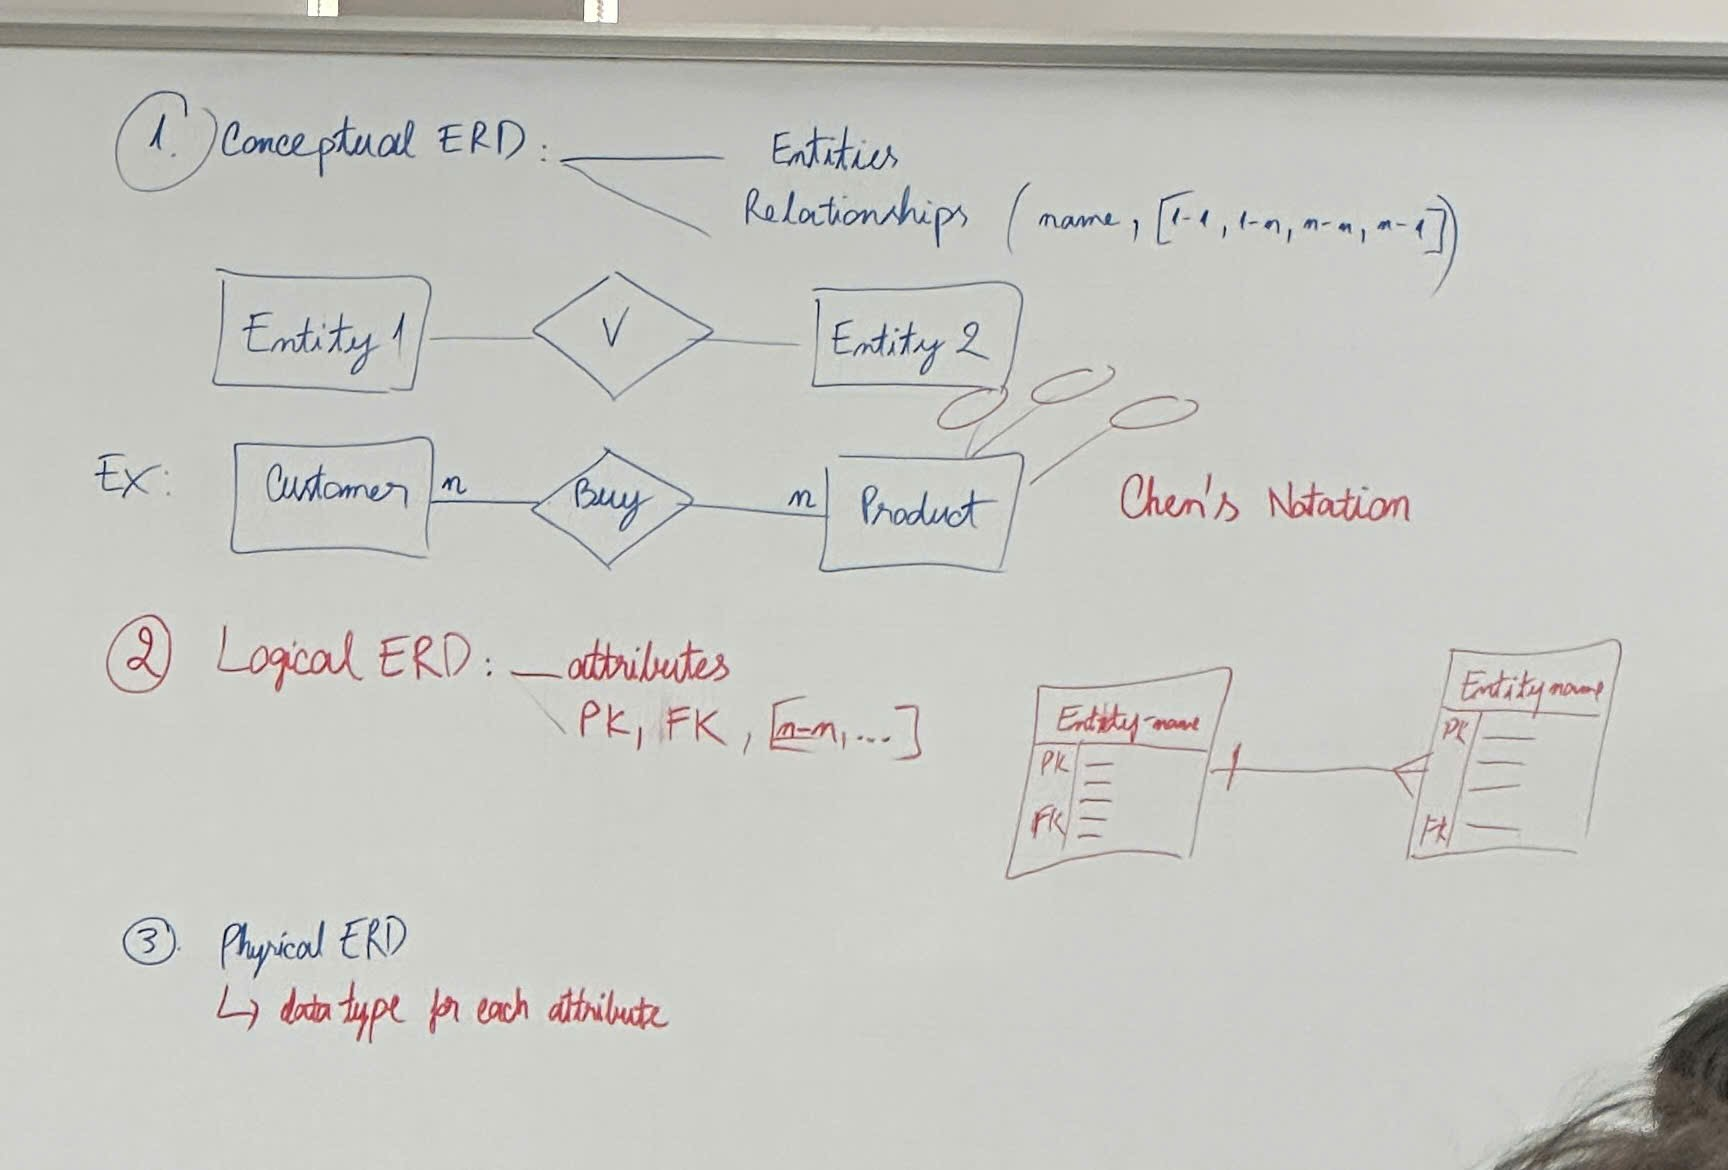 1. Conceptual ERD : Entities
Relationships ( name, [1-1, 1-n, n-n, n-1])
Entity 1 V Entity 2
Ex: Customer n Buy n Product
Chen's Notation
2 Logical ERD : attributes
PK, FK, [n-n, ...]
Entity-name
PK
FK
Entity name
PK
FK
3. Physical ERD
↳ data type for each attribute